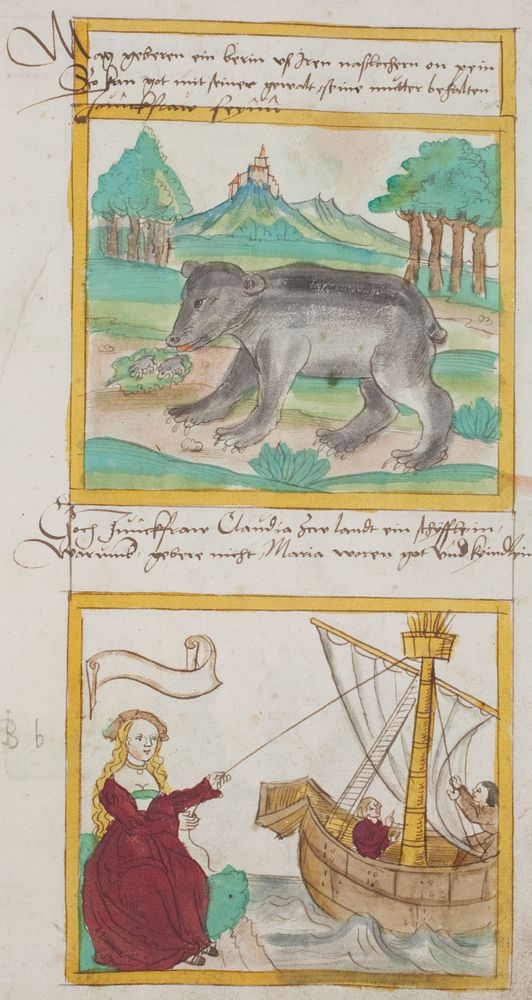 Mag geberen ein berin uß Iren naslochern on pein
So kan got mit seiner gewalt seine mutter behalten
Junckfraw
Zoch Junckfraw Claudia zw landt ein schyfflein,
Warumb gebere nicht Maria woren got und kindlein
B b